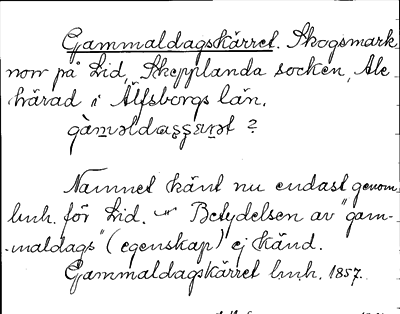 Gammaldagskärret. Skogsmark
norr på Lid, Skepplanda socken, Ale
härad i Älfsborgs län.
?
Namnet känt nu endast genom
lmh. för Lid. Betydelsen av "gam-
maldags" (egenskap) ej känd.
Gammaldagskärret lmh. 1857.